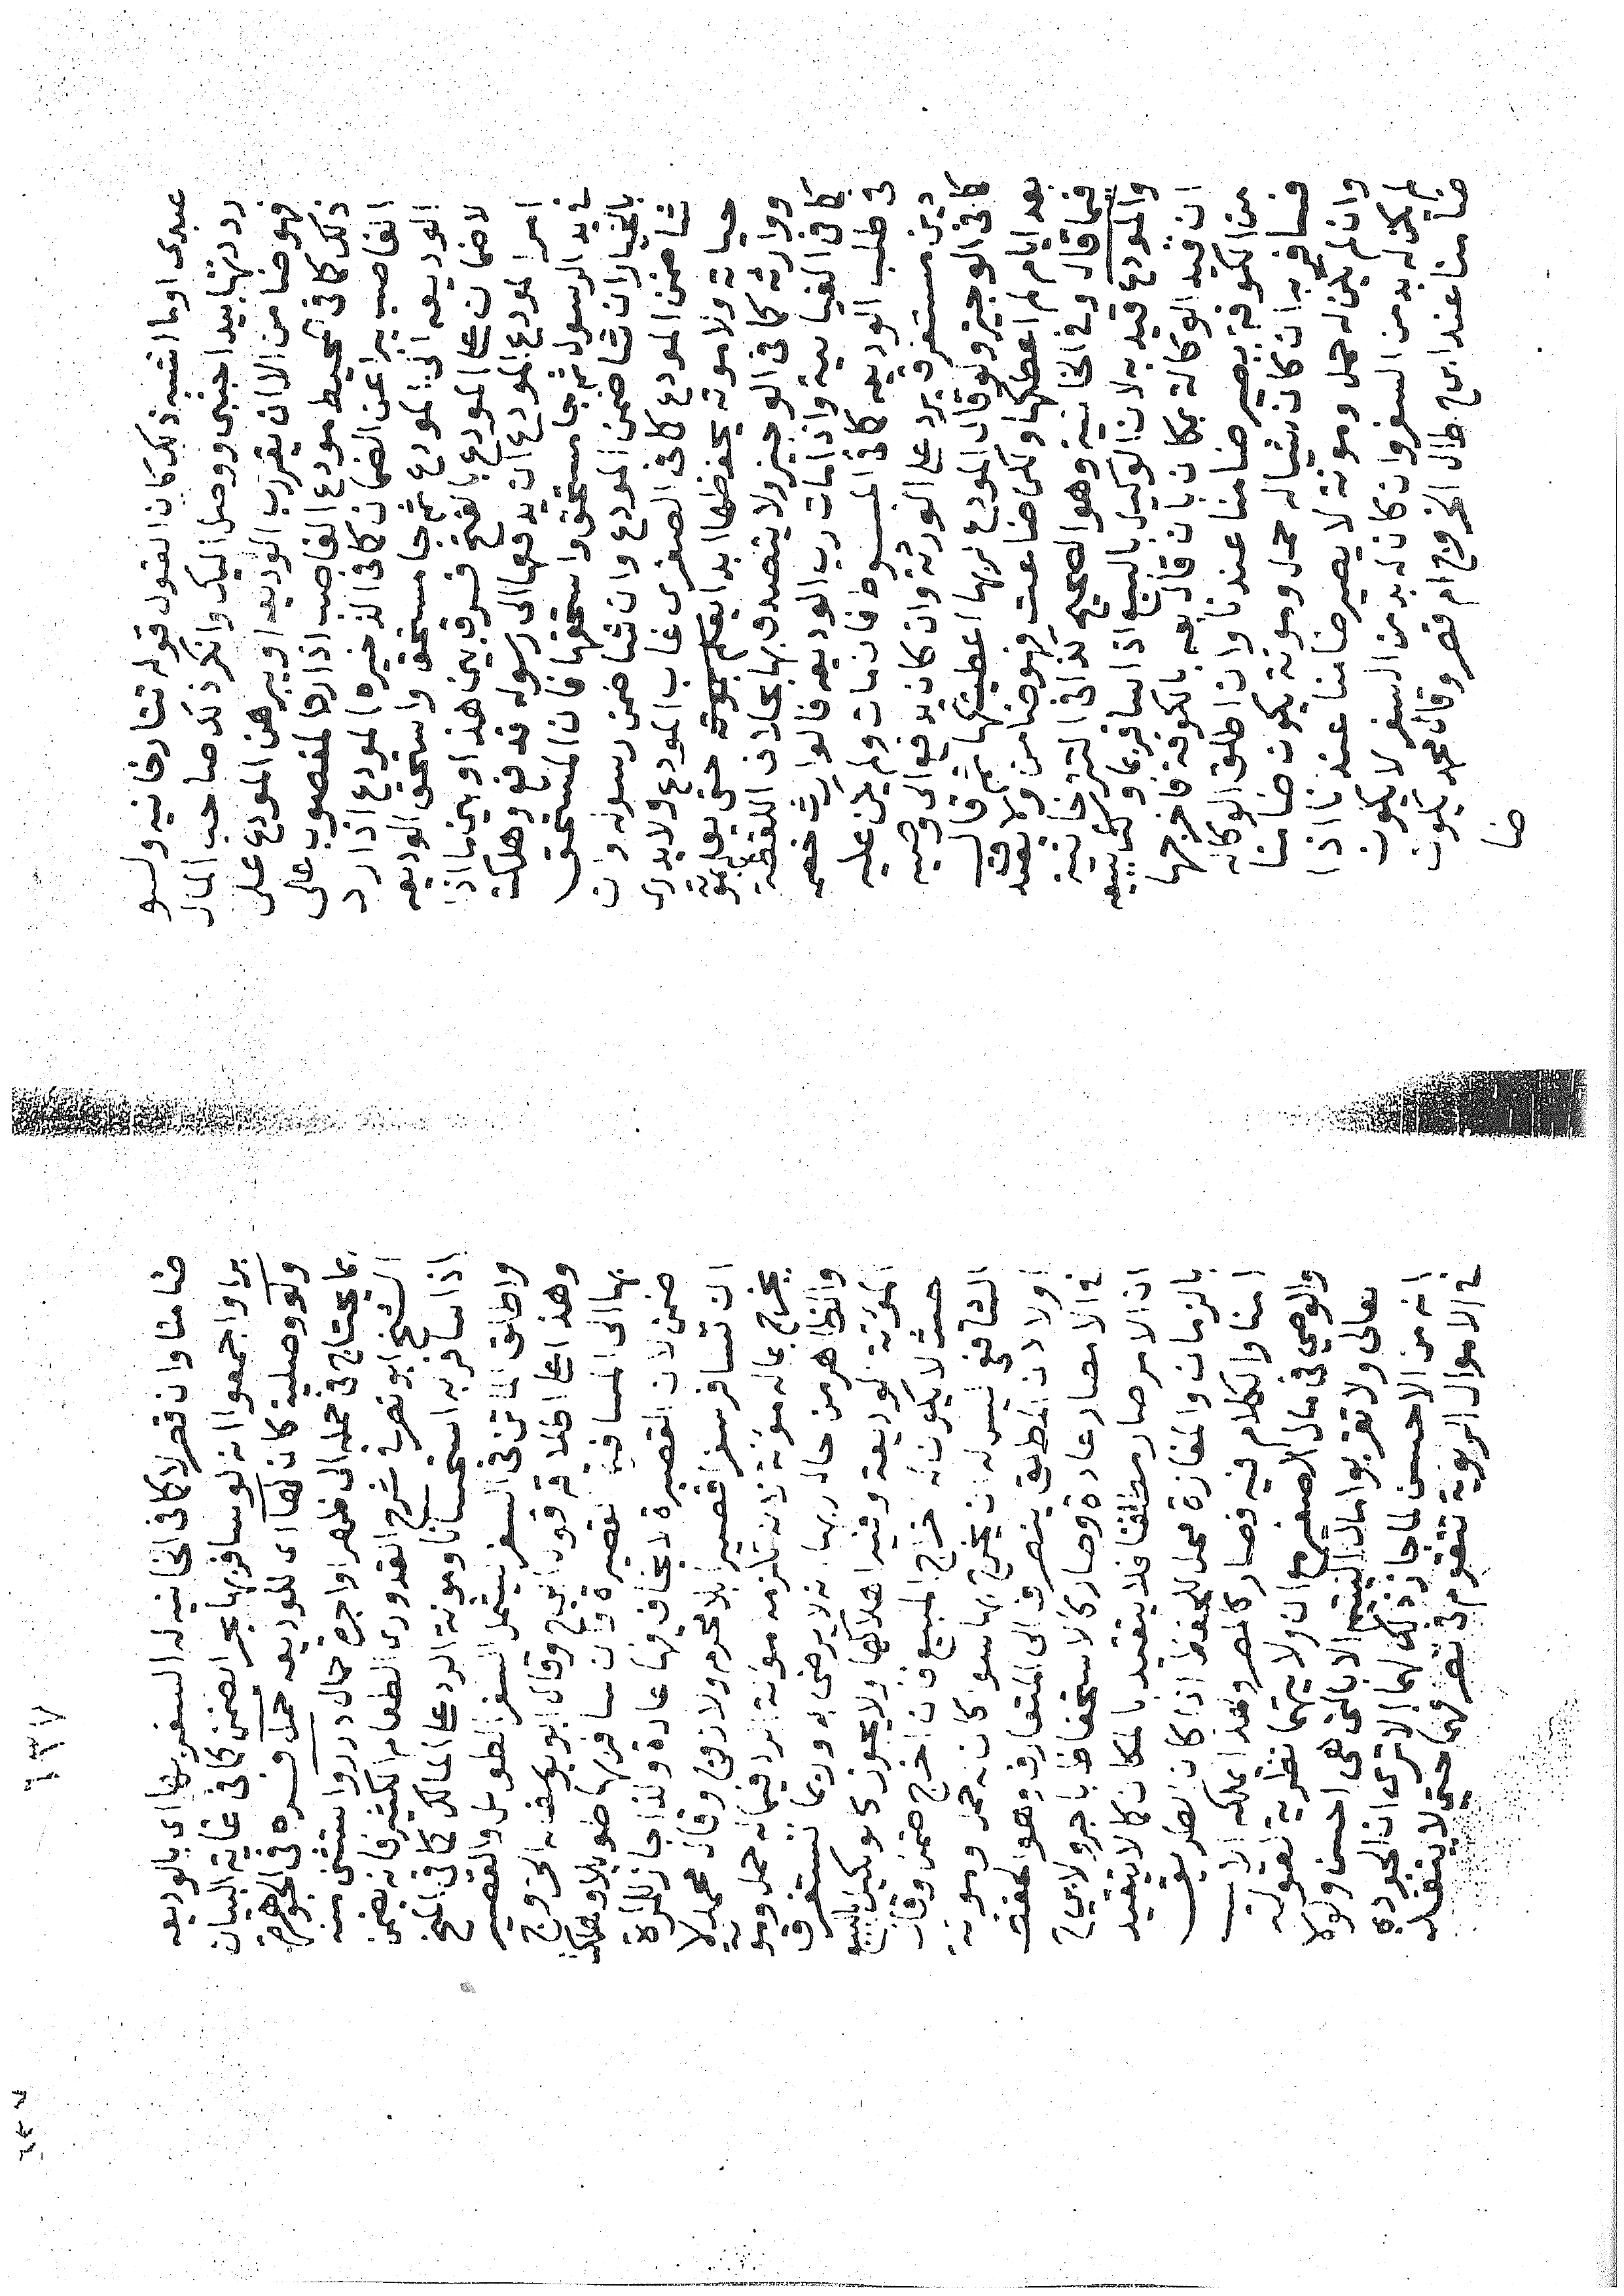 عبدى او ما اشبه ذلك كان القول قوله تتارخانيه ولو
رددتها بيد اجنبى ووصل اليك وانكر ذلك صاحب المال
فهو ضامن الا ان يقر رب الوديعه او يبرهن المودع على
ذلك كما فى المحيط مودع الغاصب اذا رد المغصوب على
الغاصب يبرا عن الضمان كما فى الذخيره المودع اذا رد
الوديعه الى المودع ثم جا مستحق واستحق الوديعه
لا ضمان على المودع بالفتح فرق بين هذا وبين ما اذا
امر المودع المودع ان يدفعها الى رسوله فدفع وهلكت
فى يد الرسول ثم جا مستحق واستحقها فان المستحق
بالخيار ان شا ضمن المودع وان شا ضمن رسوله وان
شا ضمن المودع كما فى الصغرى غاب المودع ولا يدرى
حياته ولا موته يحفظها ابدا حتى يعلم بموته
ووارثه كما فى الوجيز ولا يتصدق بها بخلاف اللقطة
كما فى الغياثية واذا مات رب الوديعه فالوارث خصم
فى طلب الوديعه كما فى المبسوط فان مات ولم يكن عليه
دين مستغرق يرد على الورثه وان كان يدفع الى وصيه
كما فى الوجيز ولو قال المودع لربها اعطيتكها ثم قال
بعد ايام لم اعطكها ولكن ضاعت فهو ضامن ولا يصدق
فيما قال وفى الخانية وهو الصحيح كذا فى التترخانية
والمودع قيد به لان الوكيل بالبيع اذا سافر بما وكل ببيعه
ان قيد الوكالة بمكان بان قال بعه بالكوفة فاخرجها
من الكوفة يصير ضامنا عندنا وان اطلق الوكاله
فسافر به ان كان شيا له حمل ومونة يكون ضامنا
وان لم يكن له حمل ومونة لا يصير ضامنا عندنا اذا
لم يكن له بد من السفر وان كان له بد من السفر لا يكون
ضامنا عند ابى ح طال الخروج ام قصر وقال محمد يكون
ضا
ضامنا وان قصر لا كما فى الخانيه له السفر بها اى بالوديعه
برا واجمعوا انه لو سافر بها بحرا يضمن كما فى غاية البيان
ولو وصليه كان لها اى للوديعه حمل فسره فى الجوهرة
بما يحتاج فى حمله الى ظهر او اجرة حمال درر واستثنى منه
الشيخ ابو نصر فى شرح القدورى الطعام الكثير فانه يضمن
اذا سافر به استحسانا ومونة الرد على المالك كما فى المنح
واطلق الماتن فى السفر فشمل السفر الطويل والقصير
وهذا على اطلاقه قول ابى ح وقال ابو يوسف له الخروج
بها الى المسافة القصيرة فان سافر بها طويلا وهلك
ضمن لان القصيرة لا يخاف فيها عادة ولذا جاز للمراة
ان تسافر سفرا قصيرا بلا محرم ولا زوج وقال محمد لا
يخرج بماله مؤنة لانه تلزمه مؤنة الرد فيما له حمل ومو
والظاهر من حال ربها انه لا يرضى به وربما تستغرق
المؤنة الوديعة وفيه اهلاكها ولا يجوز كالوكيل بالبيع
حيث لا يكون له اخراج المبيع فان اخرج ضمن وقال
الشافعى ليس له ان يخرج بها سوا كان له حمل ومونة
اولا لان المطلق ينصرف الى المتعارف وهو الحفظ
فى الامصار عادة وصار كالاستحفاظ باجر ولابى ح
ان الامر صار مطلقا فلا يتقيد بالمكان كما لا يتقيد
بالزمان والمفازة محل للحفظ اذا كان الطريق
امنا والكلام فيه فصار كالمصر ولهذا يملكه الاب
والوصى فى مال الصغير مع ان ولايتهما نظرية لقوله
تعالى ولا تقربوا مال اليتيم الا بالتى هى احسن ولولا
انه من الاحسن لما جاز ذلك لهما الا ترى ان الجودة
فى الاموال الربوية تتقوم فى تصرفهما حتى لا ينفذ